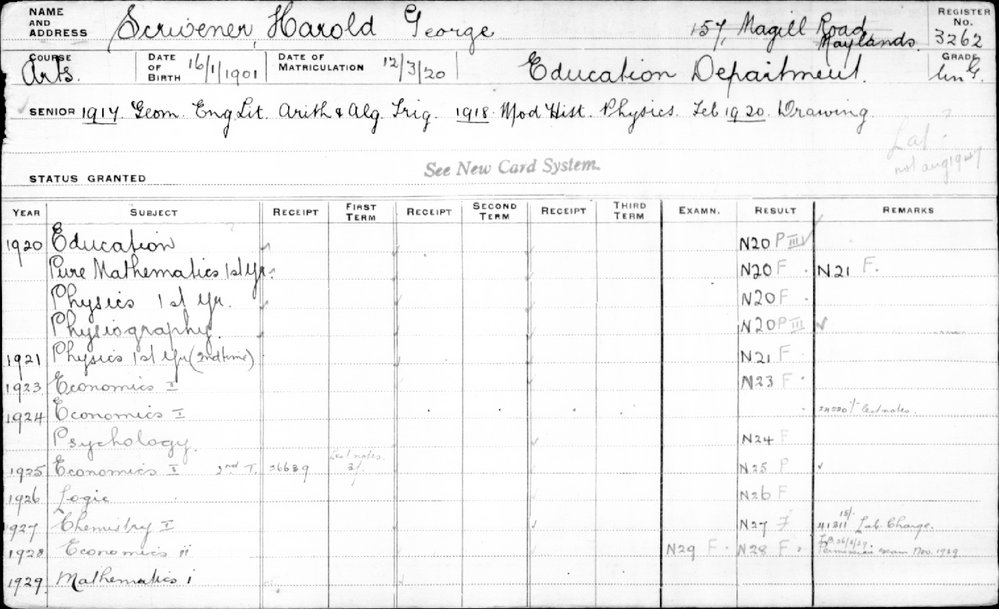 NAME AND ADDRESS Scrivener, Harold George 157, Magill Road Maylands. REGISTER No. 3262
COURSE Arts. DATE OF BIRTH 16/1/1901 DATE OF MATRICULATION 12/3/20 Education Department. GRADE
SENIOR 1917 Geom. Eng Lit. Arith & Alg. Trig. 1918 Mod Hist. Physics. Feb 1920 Drawing
Lat. ?
not aug 1927
See New Card System.
STATUS GRANTED
YEAR SUBJECT RECEIPT FIRST TERM RECEIPT SECOND TERM RECEIPT THIRD TERM EXAMN. RESULT REMARKS
1920 Education N20 P III
Pure Mathematics 1st Yr. N20 F. N21 F.
Physics 1st Yr. N20 F
Physiography. N20 P III
1921 Physics 1st Yr (2nd time) N21 F
1923 Economics I N23 F.
1924 Economics I Lect notes.
Psychology. N24 F
1925 Economics I 2nd T. 26639 Lect notes. 2/. N25 P
1926 Logic N26 F
1927 Chemistry I N27 F 41311 15/- Lab Charge.
1928 Economics ii N29 F. N28 F. Permission exam Nov. 1929
1929 Mathematics i